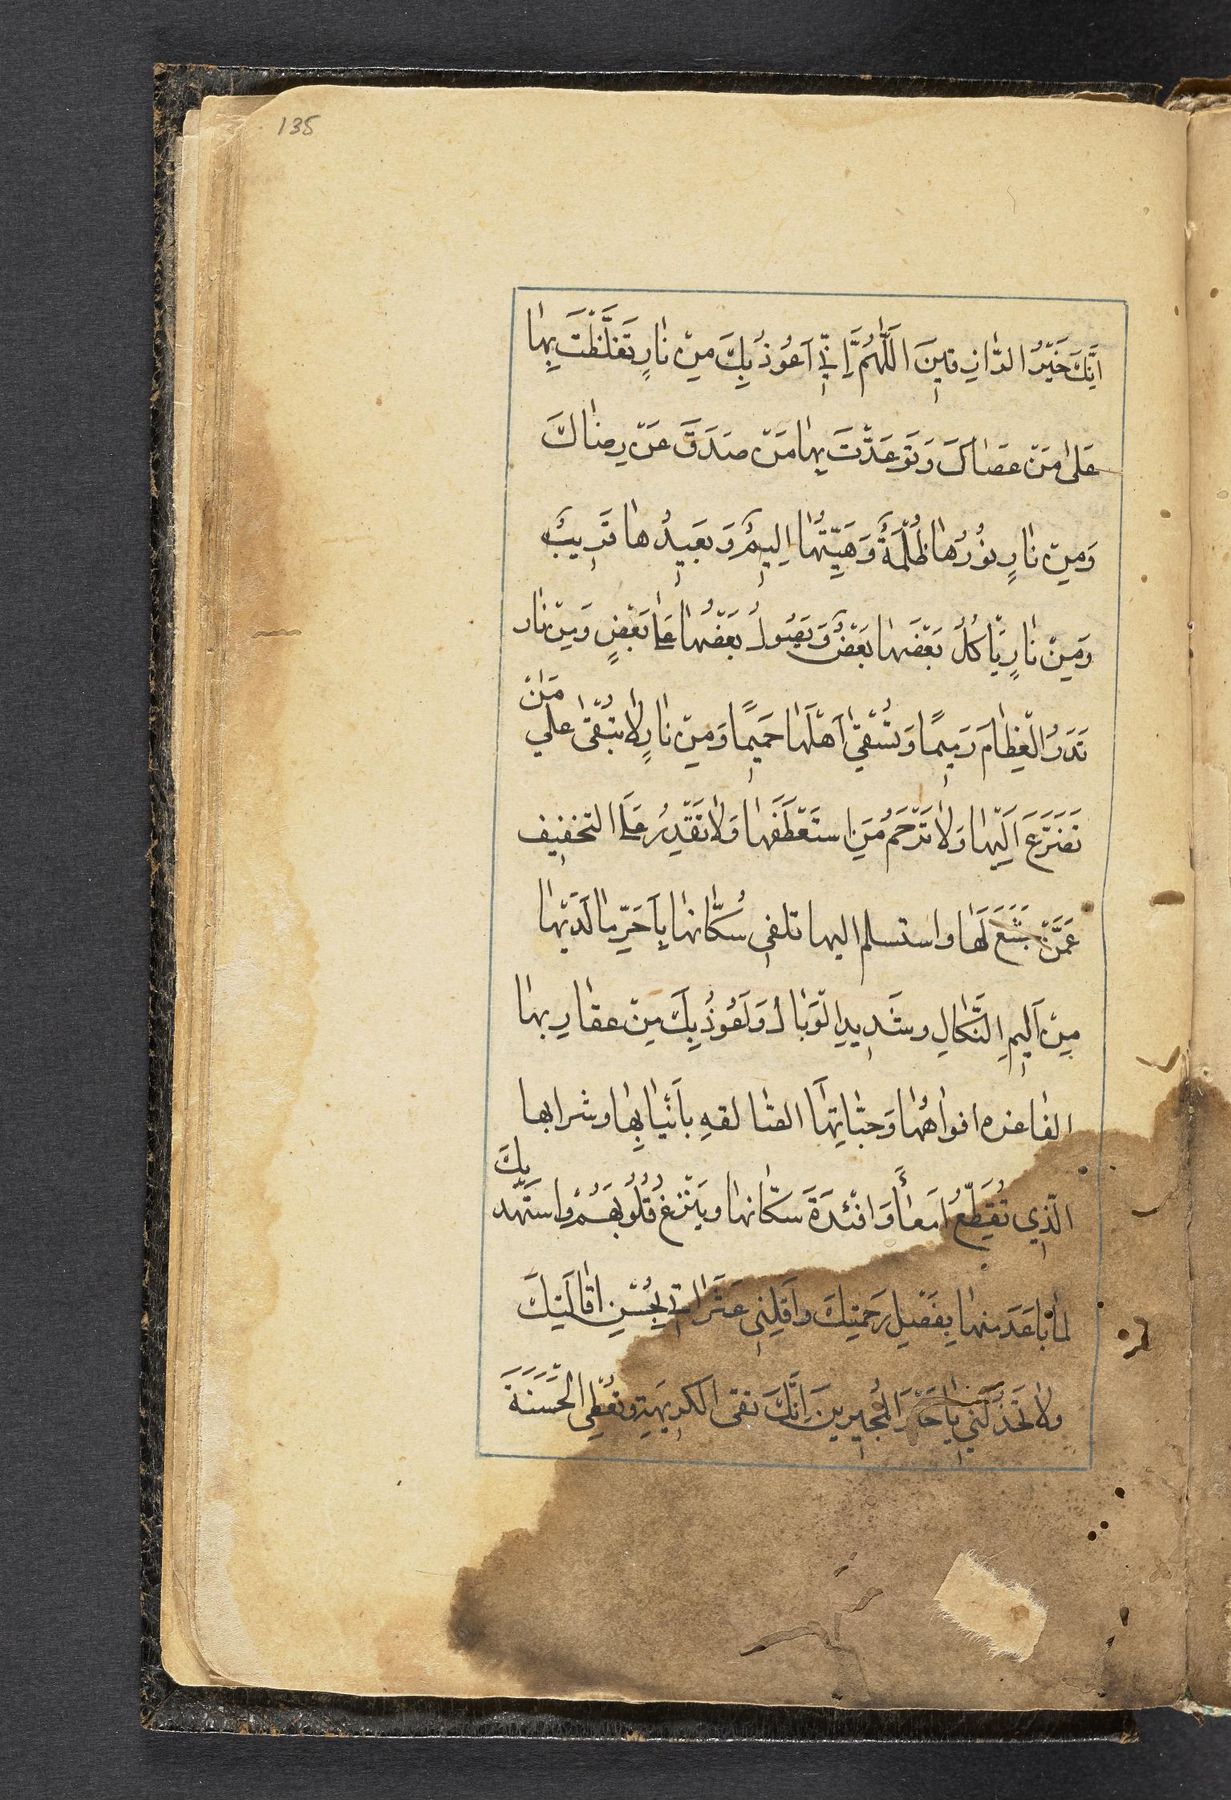 135
اِنَّكَ خَيْرُ الرّازِقينَ اَللّهُمَّ اِنّي اَعُوذُ بِكَ مِنْ نارٍ تَغَلَّظْتَ بِها
عَلى مَنْ عَصاكَ وَتَوَعَّدْتَ بِها مَنْ صَدَقَ عَنْ رِضاكَ
وَمِنْ نارٍ نُورُها ظُلْمَةٌ وَهَيِّنُها اَليمٌ وَبَعيدُها قَريبٌ
وَمِنْ نارٍ يَأكُلُ بَعْضَها بَعْضٌ وَيَصُولُ بَعْضُها عَلى بَعْضٍ وَمِنْ نار
تَذَرُ الْعِظامَ رَميمًا وَتَسْقي اَهْلَها حَميمًا وَمِنْ نارٍ لا تُبْقى على مَنْ
تَضَرَّعَ اِلَيْها وَلا تَرْحَمُ مَنِ استَعْطَفَها وَلا تَقْدِرُ عَلَى التخفيف
عَمَّنْ خَشَعَ لَها واستسلم اليها تلقى سُكّانَها بِاَحَرِّ ما لَدَيْها
مِنْ اَليمِ النَّكالِ وشَديدِ الْوَبالِ وَاَعُوذُ بِكَ مِنْ عقارِبها
الفاغره افواهُها وَحيّاتِها الصّالقهِ بِاَنْيابِها وشرابها
الّذي تُقَطِّعُ اَمعاءَ وَاَفْئِدَةَ سُكّانِها ويَنْزعُ قُلُوبَهُمْ واستهد بِكَ
لما باعَدَ منها بِفَضْلِ رَحمتِكَ واَقِلْني عَثَراتي بِحُسْنِ اِقالَتِكَ
ولا تَخْذُلْني يا خَيْرَ الْمُجيرينَ اِنَّكَ تقى الكَريهَةِ وتُعْطِي الْحَسَنَةَ